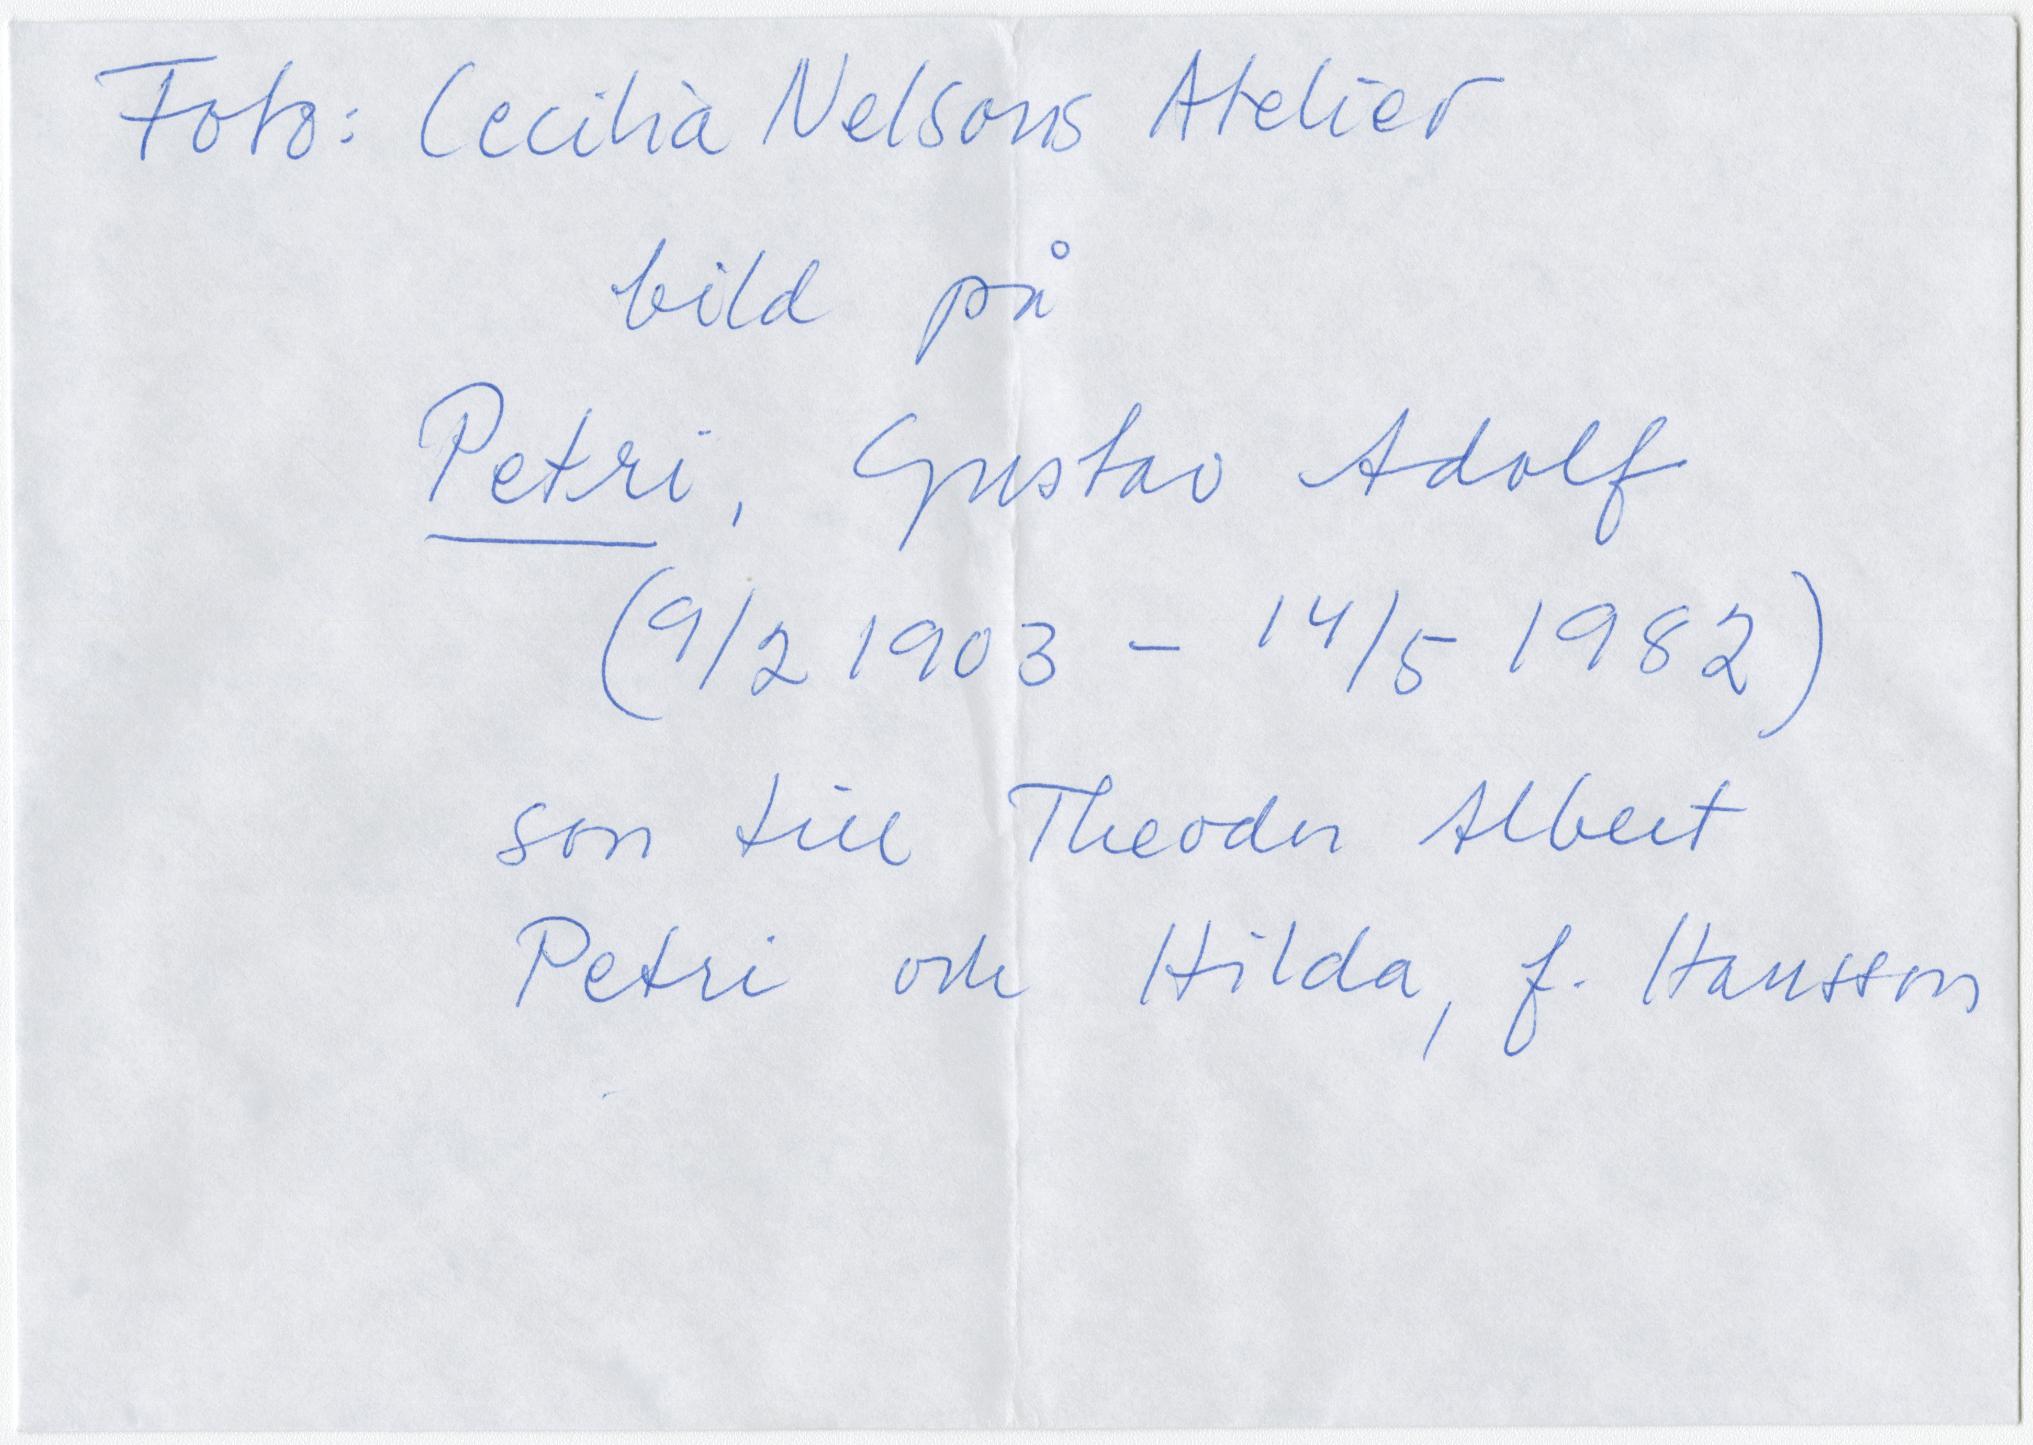 Foto: Cecilia Nelsons Atelier
bild på
Petri, Gustav Adolf
(9/2 1903 - 14/5 1982)
son till Theodor Albert
Petri och Hilda, f. Hansson